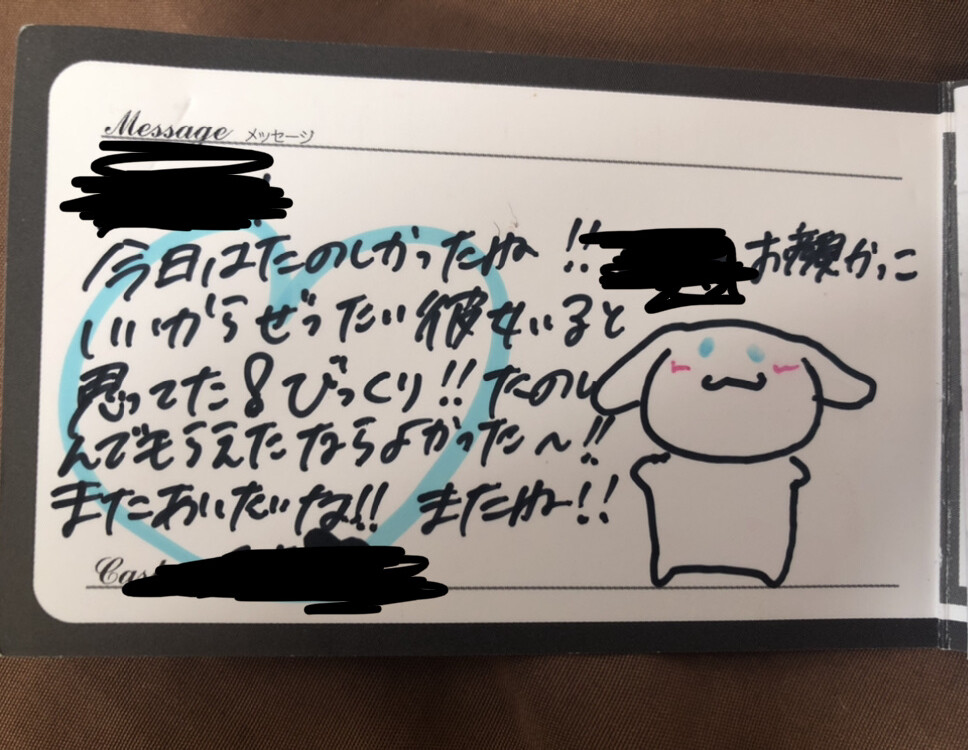 Message メッセージ
今日はたのしかったね!! お顔かっこ
いいからぜったい彼女いると
思ってた!びっくり!!たのし
んでもらえたならよかった〜!!
またあいたいな!! またね!!
Cas